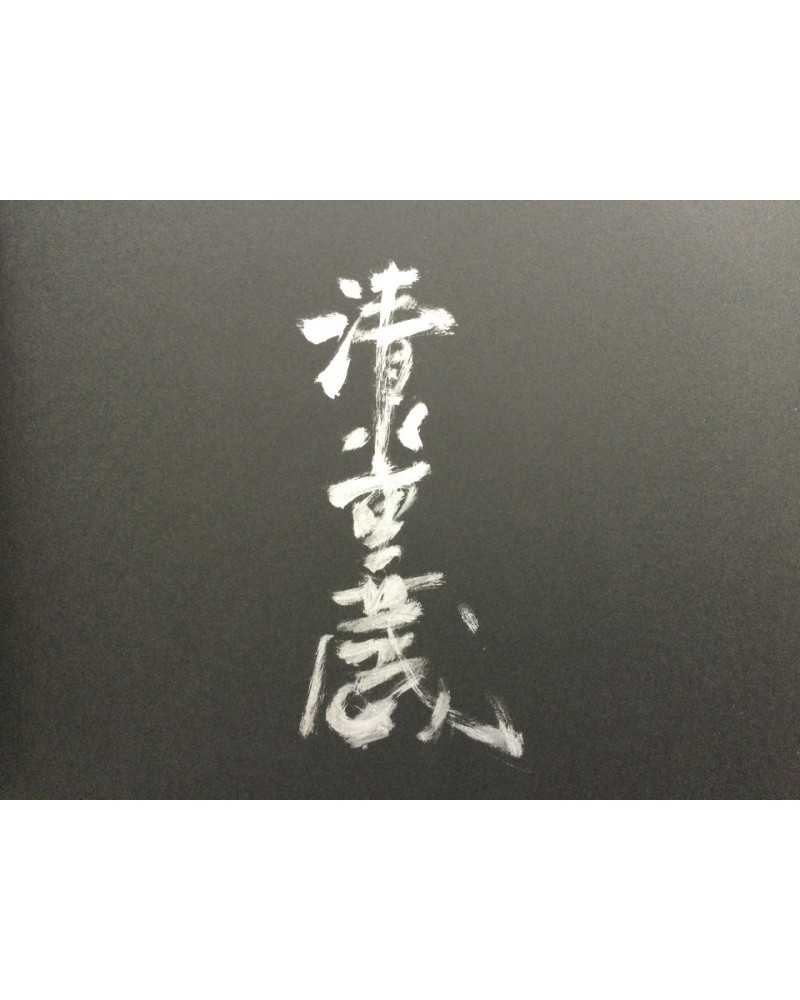 清水重蔵